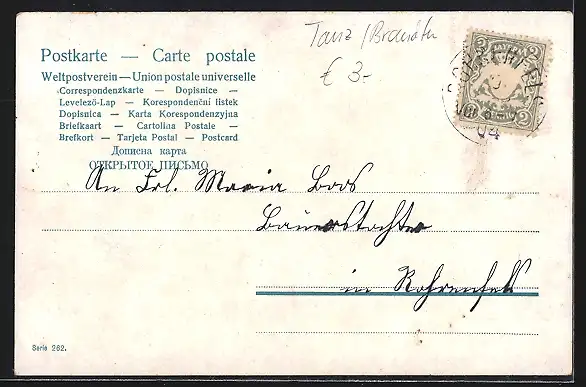 Postkarte — Carte postale
Weltpostverein — Union postale universelle
Correspondenzkarte — Dopisnice -
Levelező-Lap — Korespondenční listek
Dopisnica — Karta Korespondenzyjna
Briefkaart — Cartolina Postale —
Brefkort — Tarjeta Postal — Postcard
Дописна карта
ОТКРЫТОЕ ПИСЬМО
Tanz /
€ 3.-
BAYERN
2 2
04
An Frl. Maria Boos
Bauerstochter
in Rohrenfels
Serie 262.